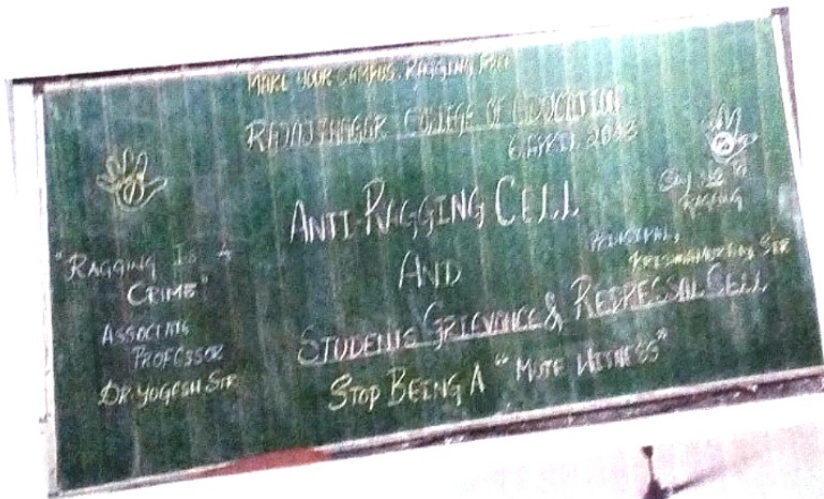 MAKE YOUR CAMPUS RAGGING FREE
RAJAJINAGAR COLLEGE OF EDUCATION
6 APRIL 2023
SAY NO TO
RAGGING
ANTI-RAGGING CELL
AND
STUDENTS GRIEVANCE & REDRESSAL CELL
STOP BEING A "MUTE WITNESS"
"RAGGING IS A
CRIME"
ASSOCIATE
PROFESSOR
DR. YOGESH SIR
PRINCIPAL,
KRISHNAMURTHY SIR